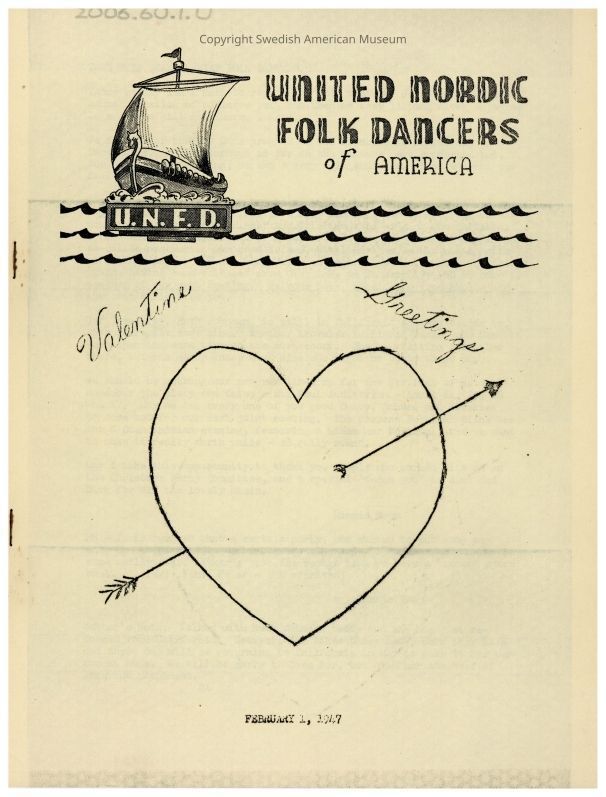 2006.60.1.0
Copyright Swedish American Museum
UNITED NORDIC
FOLK DANCERS
of AMERICA
U.N.F.D.
Valentine Greetings
FEBRUARY 1, 1947